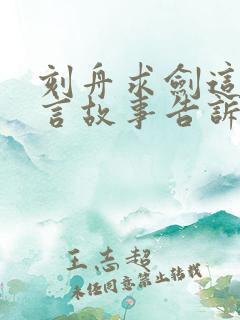 刻舟求劍這
言故事告訴
王志超
未经同意禁止转载